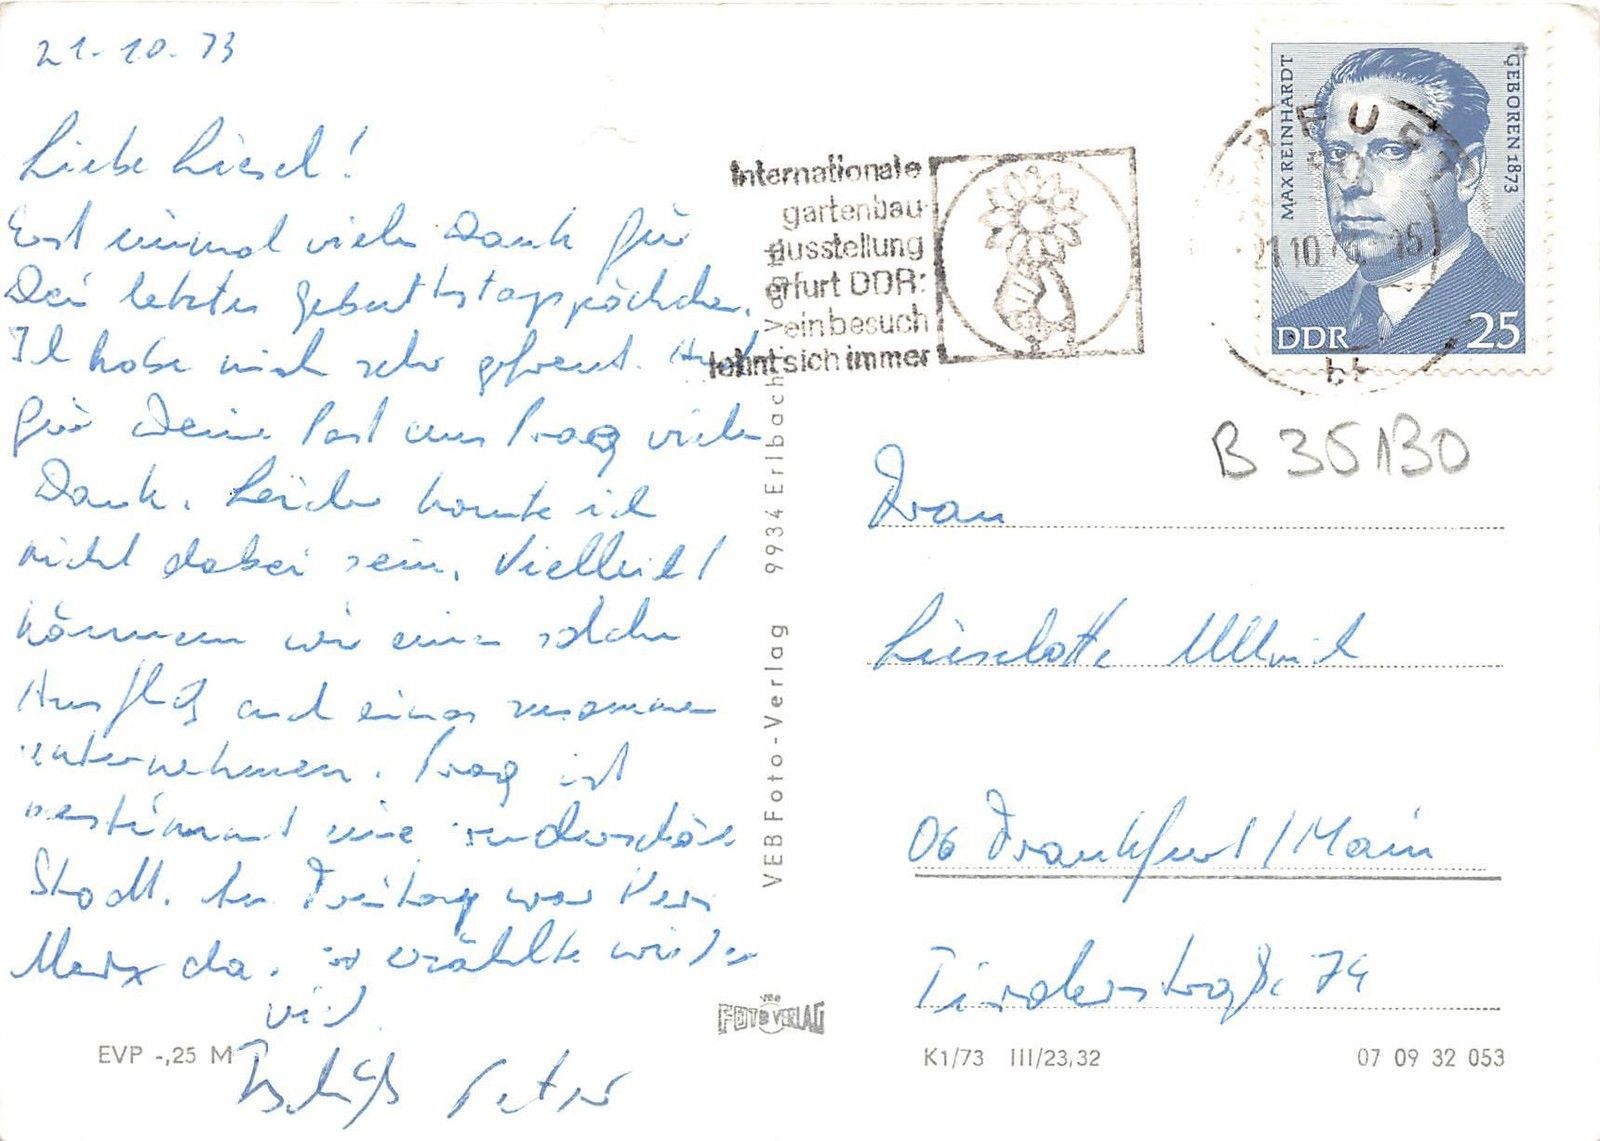 21.10.73
Liebe Liesel!
Erst einmal vielen Dank für
Dein letztes Geburtstagspäckchen.
Ich habe mich sehr gefreut. Auch
für Deine Post aus Prag vielen
Dank. Leider konnte ich
nicht dabei sein. Vielleicht
können wir einen solchen
Ausflug auch einmal zusammen
unternehmen. Prag ist
bestimmt eine wunderschöne
Stadt. Am Freitag war Herr
Marx da. er erzählte wieder
viel.
Peter
EVP -,25 M
VEB Foto-Verlag 9934 Erlbach i. Vogtl.
FOTO VERLAG
Internationale
gartenbau-
ausstellung
erfurt DDR:
ein besuch
lohnt sich immer
ERFURT
21.10.73 15
bt
MAX REINHARDT
GEBOREN 1873
DDR 25
B 35130
Frau
Lieselotte Ullrich
06 Frankfurt/Main
74
K1/73 III/23,32
07 09 32 053